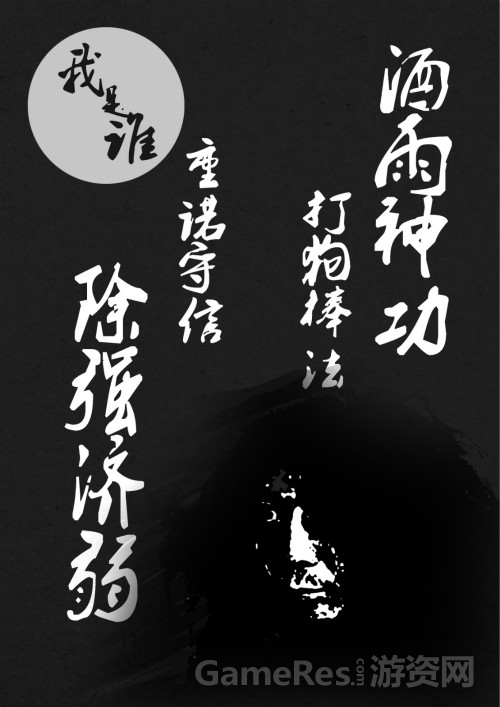 我是谁
酒雨神功
打狗棒法
重诺守信
除强济弱
GameRes.com游资网